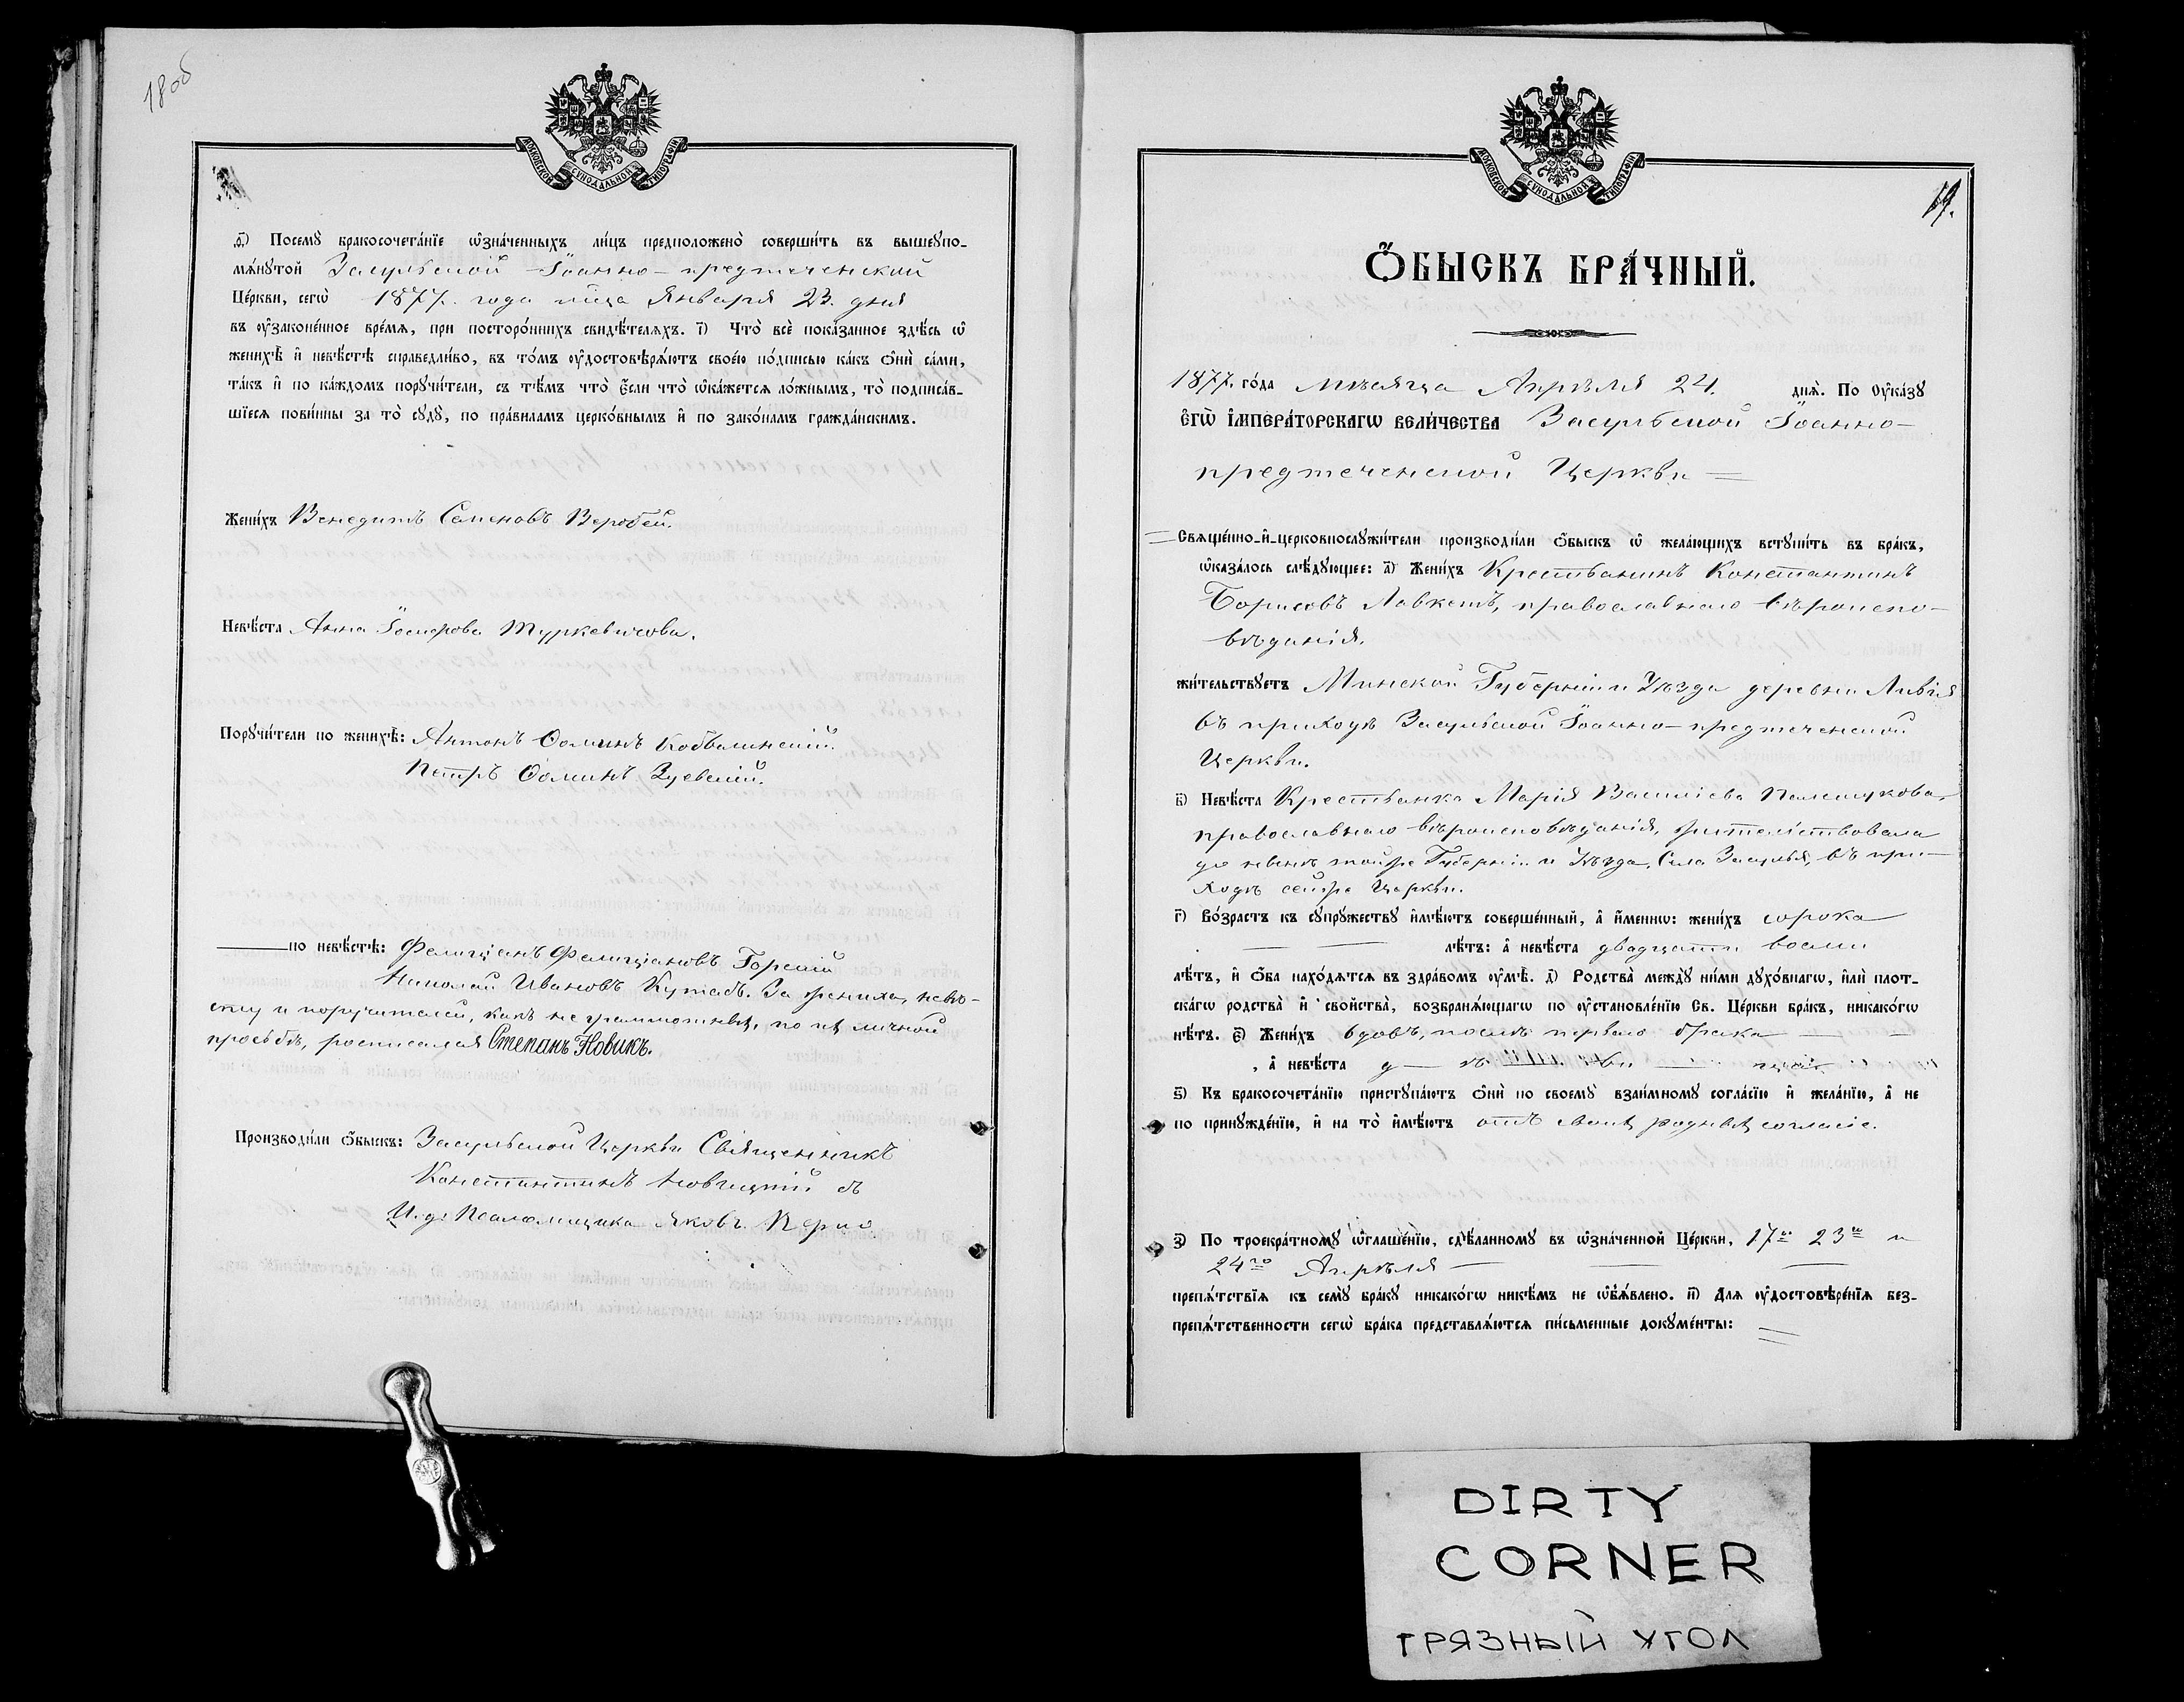 18об
МОСКОВСКОЙ СѴНОДАЛЬНОЙ ТИПОГРАФІИ
ѳ҃) Посемꙋ бракосочета́нїе ѡ҆зна́ченныхъ ли́цъ предположено̀ соверши́ть въ вышеꙋпо-
мѧ́нꙋтой Засульской Іоанно-предтеченской
Це́ркви, сегѡ̀ 1877. года мца Января 23. дня
въ ᲂу҆законе́нное вре́мѧ, при посторо́ннихъ свидѣ́телѧхъ. і҃) Что̀ всѐ пока́занное здѣ́сь ѡ҆
женихѣ̀ и҆ невѣ́стѣ справедли́во, въ то́мъ ᲂу҆достовѣрѧ́ютъ свое́ю по́дписью ка́къ ѻ҆нѝ са́ми,
та́къ и҆ по ка́ждомъ порꙋчи́тели, съ тѣ́мъ что̀ є҆́сли что̀ ѡ҆ка́жетсѧ ло́жнымъ, то̀ подписа́в-
шїесѧ пови́нны за то̀ сꙋдꙋ̀, по пра́виламъ церко́внымъ и҆ по зако́намъ гражда́нскимъ.
Жени́хъ Венедиктъ Семеновъ Веробей.
Невѣ́ста Анна Іосифова Туркевичова.
Порꙋчи́тели по женихѣ̀: Антонъ Ѳоминъ Кобылинскій.
Петръ Ѳоминъ Зуевскій.
по невѣ́стѣ: Фелиціанъ Фелиціановъ Горскій
Николай Ивановъ Кутасъ. За жениха, невѣ-
сту и поручителей, какъ неграмотныхъ, по ихъ личной
просьбѣ, росписался Степанъ Новикъ.
Производи́ли ѻ҆́быскъ: Засульской Церкви Священникъ
Константинъ Новицкій съ
И. д. Псаломщика Яковъ
МОСКОВСКОЙ СѴНОДАЛЬНОЙ ТИПОГРАФІИ
19.
Ѻ҆́БЫСКЪ БРА́ЧНЫЙ.
1877. го́да мѣсяца Апрѣля 24. днѧ̀. По ᲂу҆ка́зꙋ
Є҆ГѠ̀ І҆МПЕРА́ТОРСКАГѠ ВЕЛИ́ЧЕСТВА Засульской Іоанно-
предтеченской Церкви
Свѧще́нно-и҆-церковнослꙋжи́тели производи́ли ѻ҆́быскъ ѡ҆ жела́ющихъ встꙋпи́ть въ бра́къ,
ѡ҆каза́лось слѣ́дꙋющее: а҃) Жени́хъ Крестьянинъ Константинъ
Борисовъ Лавкетъ, православнаго вѣроиспо-
вѣданія.
жи́тельствꙋетъ Минской Губерніи и Уѣзда деревни Ливія
въ приходѣ Засульской Іоанно-предтеченской
Церкви.
в҃) Невѣ́ста Крестьянка Марія Василіева Полещукова,
православнаго вѣроисповѣданія, жительствовала
до нынѣ тойже Губерніи и Уѣзда, Села Засулья, въ при-
ходѣ сейже Церкви.
г҃) Во́зрастъ къ сꙋпрꙋ́жествꙋ и҆мѣ́ютъ соверше́нный, а҆ и҆́меннѡ: жени́хъ сорока
лѣ́тъ: а҆ невѣ́ста двадцати восьми
лѣ́тъ, и҆ ѻ҆́ба нахо́дѧтсѧ въ здра́вомъ ᲂу҆мѣ̀. д҃) Родства̀ междꙋ̀ ни́ми дꙋхо́внагѡ, и҆лѝ плот-
ска́гѡ родства̀ и҆ свойства̀, возбранѧ́ющагѡ по ᲂу҆становле́нїю Св. Це́ркви бра́къ, никако́гѡ
нѣ́тъ. є҃) Жени́хъ вдовъ, послѣ перваго брака
, а҆ невѣ́ста
ѕ҃) Къ бракосочета́нїю пристꙋпа́ютъ ѻ҆нѝ по своемꙋ̀ взаи́мномꙋ согла́сїю и҆ жела́нїю, а҆ не
по принꙋжде́нїю, и҆ на то̀ и҆мѣ́ютъ отъ своихъ родныхъ согласіе.
з҃) По троекра́тномꙋ ѡ҆глаше́нїю, сдѣ́ланномꙋ въ ѡ҆зна́ченной Це́ркви, 17го 23го и
24го Апрѣля
препѧ́тствїѧ къ семꙋ̀ бра́кꙋ никако́гѡ никѣ́мъ не ѡ҆б̾ѧ́влено. и҃) Длѧ ᲂу҆достовѣре́нїѧ без-
препѧ́тственности сегѡ̀ бра́ка представлѧ́ютсѧ пи́сьменные докꙋме́нты:
DIRTY
CORNER
ГРЯЗНЫЙ УГОЛ